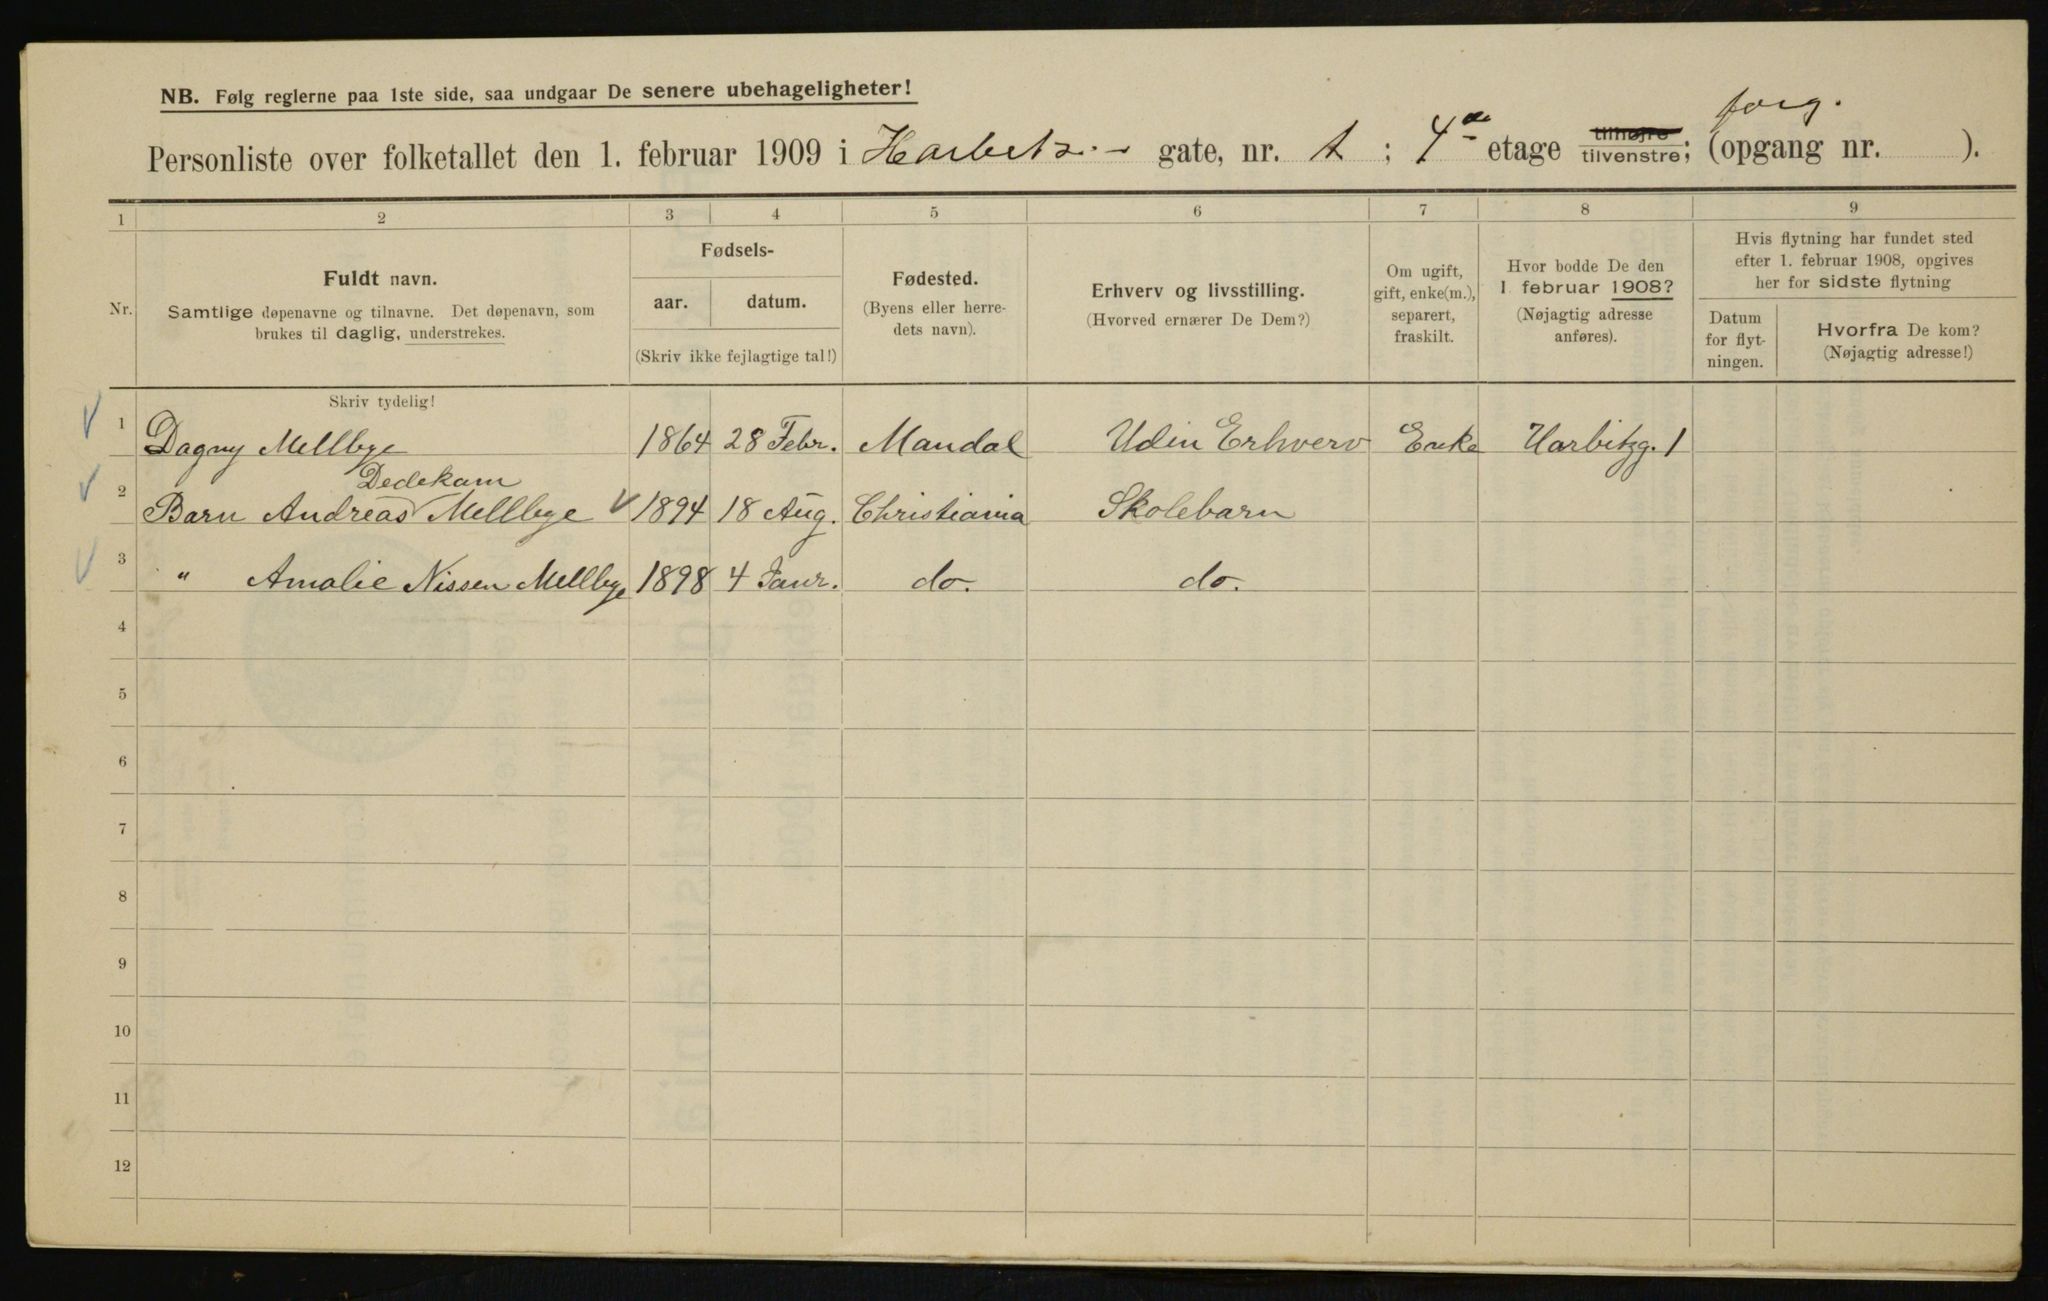 NB. Følg reglerne paa 1ste side, saa undgaar De senere ubehageligheter!
forg.
Personliste over folketallet den 1. februar 1909 i Harbitz gate, nr. 1; 4de etage tilhøjre tilvenstre; (opgang nr. ).
1 2 3 4 5 6 7 8 9
Nr.
Fuldt navn.
Samtlige døpenavne og tilnavne. Det døpenavn, som
brukes til daglig, understrekes.
Fødsels-
aar. datum.
(Skriv ikke fejlagtige tal!)
Fødested.
(Byens eller herre-
dets navn).
Erhverv og livsstilling.
(Hvorved ernærer De Dem?)
Om ugift,
gift, enke(m.),
separert,
fraskilt.
Hvor bodde De den
1 februar 1908?
(Nøjagtig adresse
anføres).
Hvis flytning har fundet sted
efter 1. februar 1908, opgives
her for sidste flytning
Datum
for flyt-
ningen.
Hvorfra De kom?
(Nøjagtig adresse!)
Skriv tydelig!
1 Dagny Mellbye 1864 28 Febr. Mandal Uden Erhverv Enke Harbitzg. 1
Dedekam
2 Barn Andreas Mellbye 1894 18 Aug. Christiania Skolebarn
3 " Amalie Nissen Mellbye 1898 4 Janr. do. do.
4
5
6
7
8
9
10
11
12